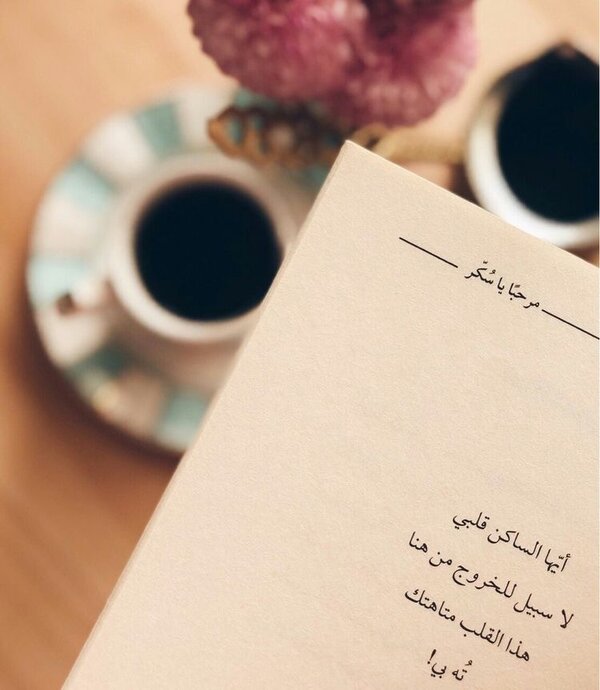 مرحبًا يا سُكّر
أيّها الساكن قلبي
لا سبيل للخروج من هنا
هذا القلب متاهتك
تُه بي!